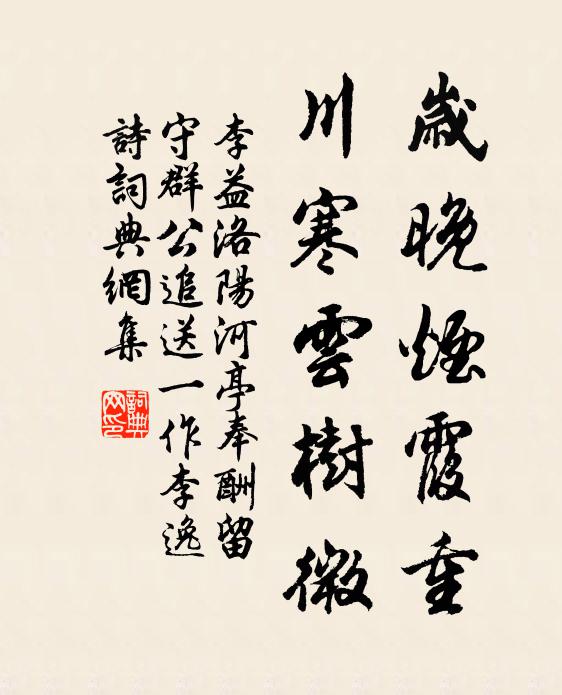 歲晚煙霞重
川寒雲樹微
李益洛陽河亭奉酬留
守群公追送一作李逸
詩詞典網集
詞典
网印